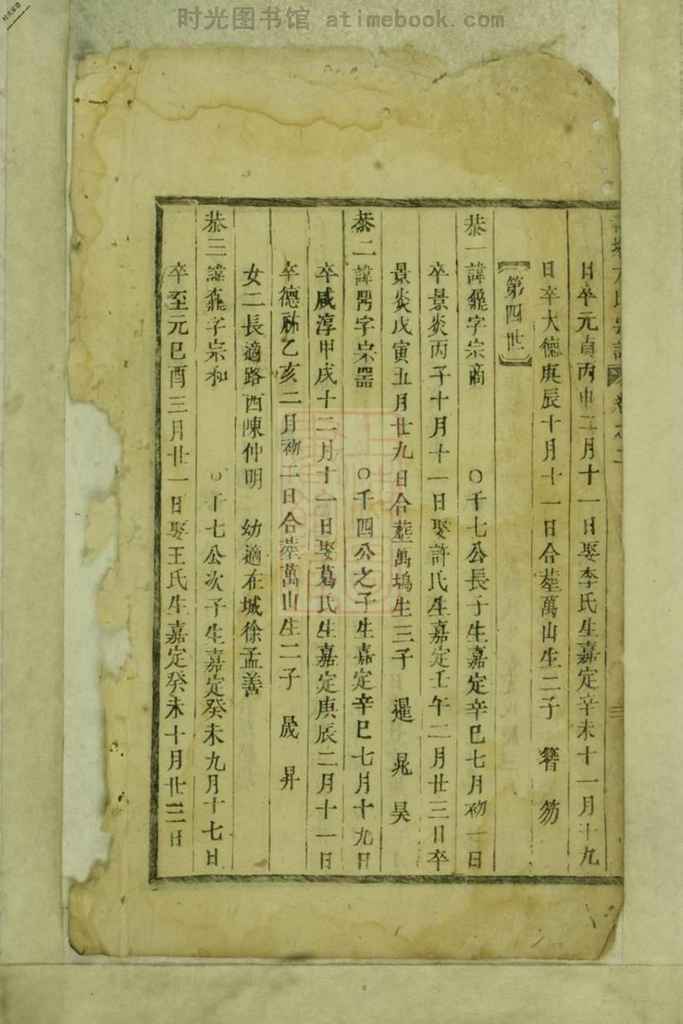 时光图书馆 atimebook.com
日卒元貞丙申二月十一日娶李氏生嘉定辛未十一月十九
日卒大德庚辰十月十一日合塟萬山生二子 簪 笏
【第四世】
恭一諱 字宗商 ○千七公長子生嘉定辛巳七月初一日
卒景炎丙子十月十一日娶許氏生嘉定壬午二月廿三日卒
景炎戊寅五月廿九日合塟萬塢生三子 暹 晁 昊
恭二諱 字宗器 ○千四公之子生嘉定辛巳七月十九日
卒咸淳甲戌十二月十一日娶葛氏生嘉定庚辰二月十一日
卒德祐乙亥二月初二日合塟萬山生二子 晟 昇
女二長適路西陳仲明 幼適在城徐孟善
恭三諱 字宗和 ○千七公次子生嘉定癸未九月十七日
卒至元己酉三月廿一日娶王氏生嘉定癸未十月廿三日